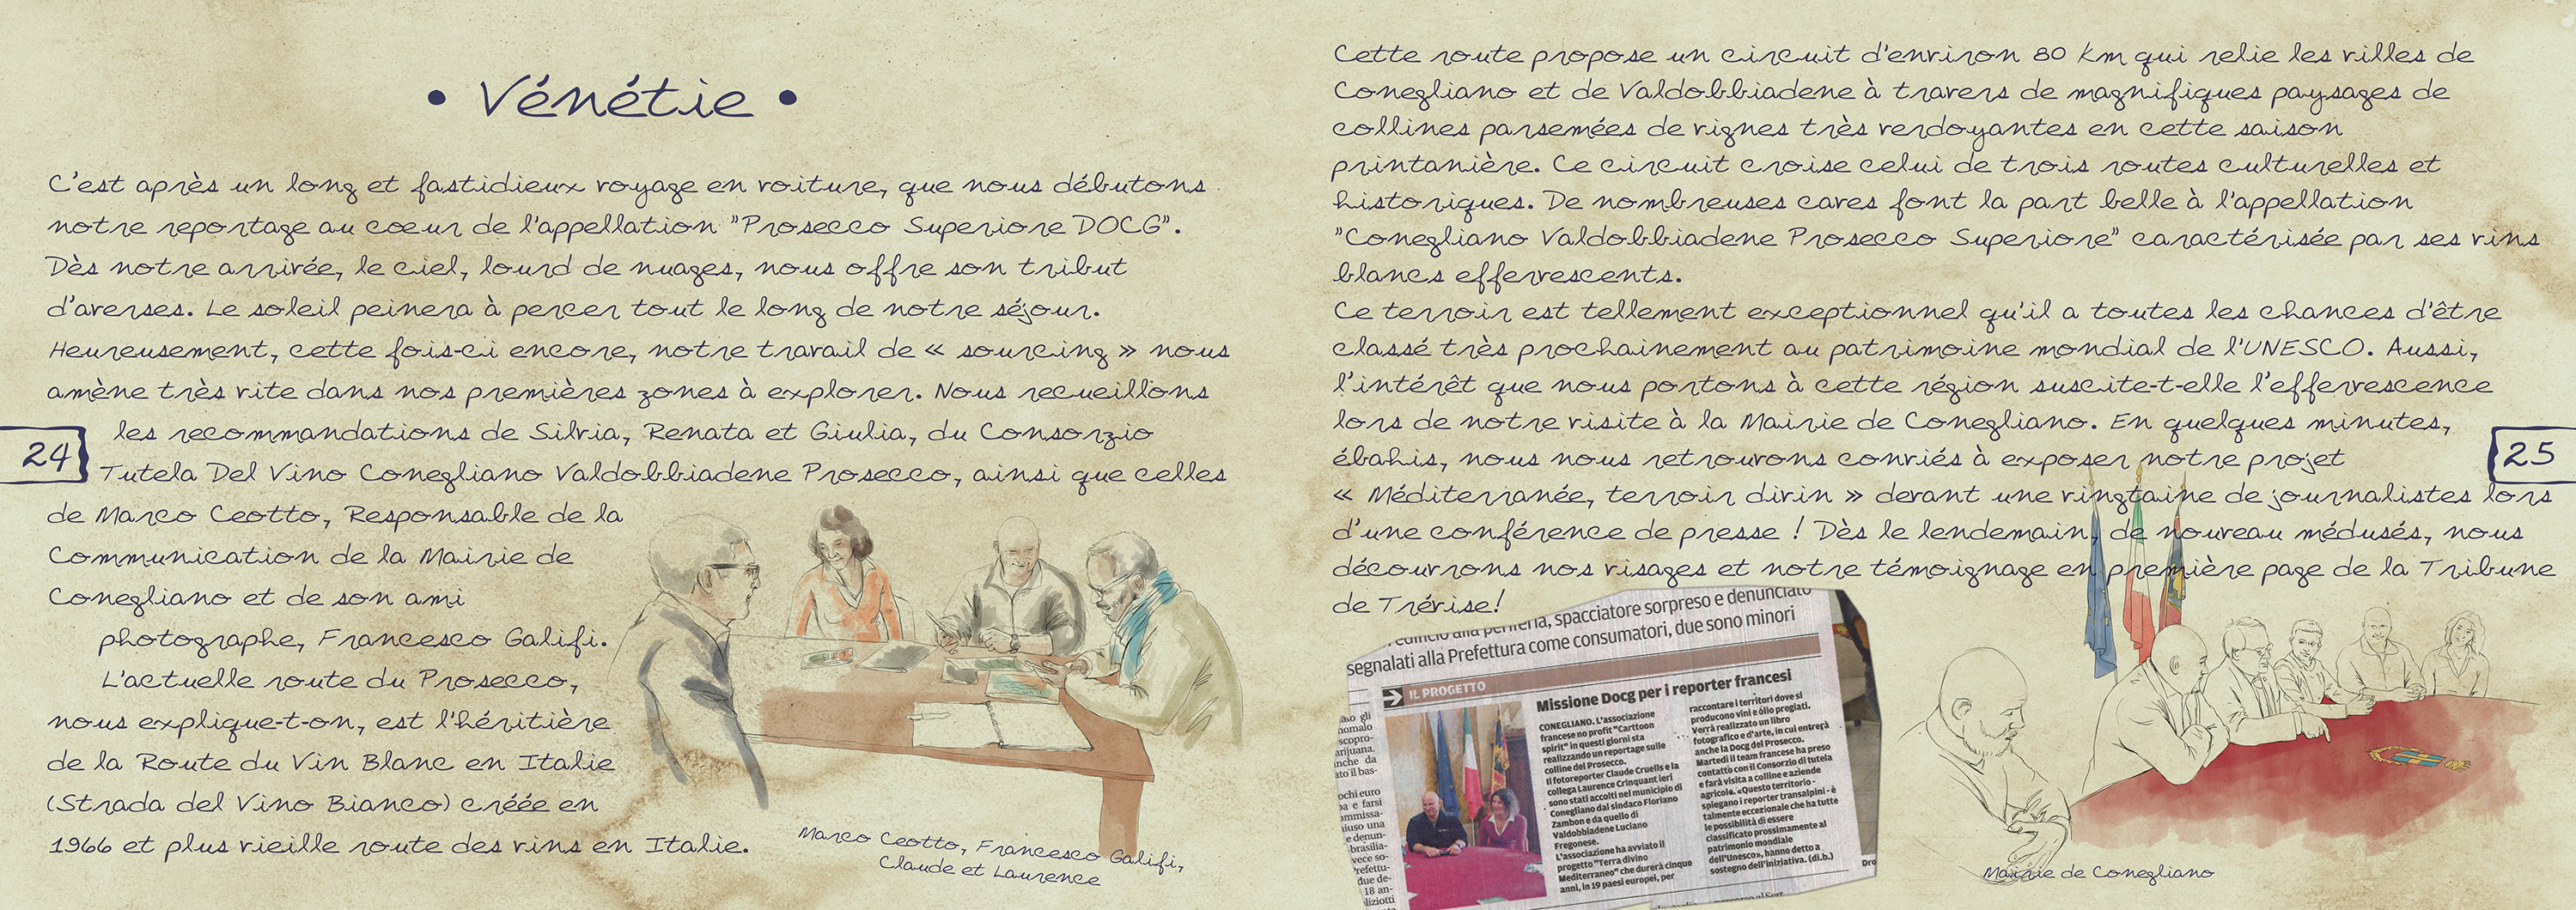 • Vénétie •
C'est après un long et fastidieux voyage en voiture, que nous débutons
notre reportage au coeur de l'appellation "Prosecco Superiore DOCG".
Dès notre arrivée, le ciel, lourd de nuages, nous offre son tribut
d'averses. Le soleil peinera à percer tout le long de notre séjour.
Heureusement, cette fois-ci encore, notre travail de « sourcing » nous
amène très vite dans nos premières zones à explorer. Nous recueillons
les recommandations de Silvia, Renata et Giulia, du Consorzio
Tutela Del Vino Conegliano Valdobbiadene Prosecco, ainsi que celles
de Marco Ceotto, Responsable de la
Communication de la Mairie de
Conegliano et de son ami
photographe, Francesco Galifi.
L'actuelle route du Prosecco,
nous explique-t-on, est l'héritière
de la Route du Vin Blanc en Italie
(Strada del Vino Bianco) créée en
1966 et plus vieille route des vins en Italie.
24
Marco Ceotto, Francesco Galifi,
Claude et Laurence
Cette route propose un circuit d'environ 80 km qui relie les villes de
Conegliano et de Valdobbiadene à travers de magnifiques paysages de
collines parsemées de vignes très verdoyantes en cette saison
printanière. Ce circuit croise celui de trois routes culturelles et
historiques. De nombreuses caves font la part belle à l'appellation
"Conegliano Valdobbiadene Prosecco Superiore" caractérisée par ses vins
blancs effervescents.
Ce terroir est tellement exceptionnel qu'il a toutes les chances d'être
classé très prochainement au patrimoine mondial de l'UNESCO. Aussi,
l'intérêt que nous portons à cette région suscite-t-elle l'effervescence
lors de notre visite à la Mairie de Conegliano. En quelques minutes,
ébahis, nous nous retrouvons conviés à exposer notre projet
« Méditerranée, terroir divin » devant une vingtaine de journalistes lors
d'une conférence de presse ! Dès le lendemain, de nouveau médusés, nous
découvrons nos visages et notre témoignage en première page de la Tribune
de Trévise!
25
edificio alla periferia, spacciatore sorpreso e denunciato
segnalati alla Prefettura come consumatori, due sono minori
IL PROGETTO
Missione Docg per i reporter francesi
CONEGLIANO. L'associazione
francese no profit "Carttoon
spirit" in questi giorni sta
realizzando un reportage sulle
colline del Prosecco.
Il fotoreporter Claude Cruells e la
collega Laurence Crinquant ieri
sono stati accolti nel municipio di
Conegliano dal sindaco Floriano
Zambon e da quello di
Valdobbiadene Luciano
Fregonese.
L'associazione ha avviato il
progetto "Terra divino
Mediterraneo" che durerà cinque
anni, in 19 paesi europei, per
raccontare i territori dove si
producono vini e olio pregiati.
Verrà realizzato un libro
fotografico e d'arte, in cui entrerà
anche la Docg del Prosecco.
Martedì il team francese ha preso
contatto con il Consorzio di tutela
e farà visita a colline e aziende
agricole. «Questo territorio -
spiegano i reporter transalpini - è
talmente eccezionale che ha tutte
le possibilità di essere
classificato prossimamente al
patrimonio mondiale
dell'Unesco», hanno detto a
sostegno dell'iniziativa. (di.b.)
Mairie de Conegliano